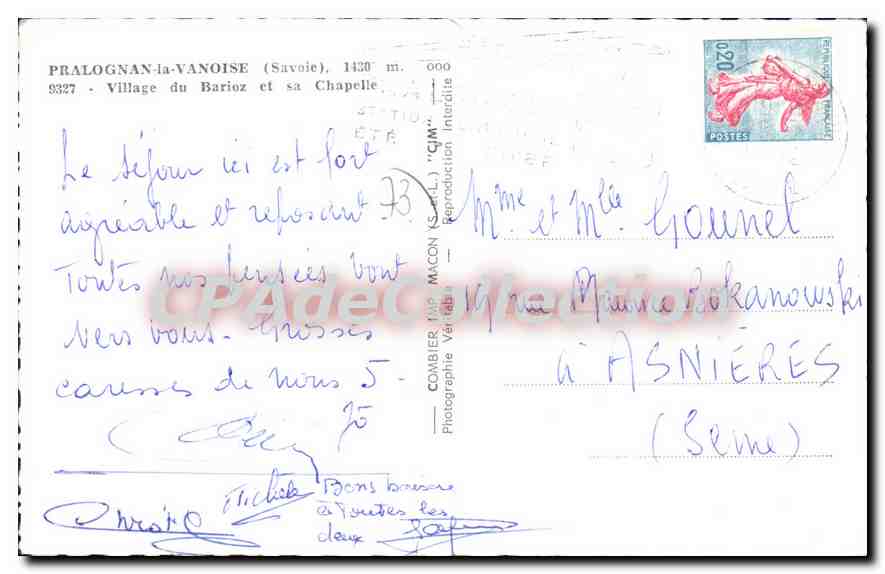 PRALOGNAN-la-VANOISE (Savoie), 1430 m. 000
9327 - Village du Barioz et sa Chapelle
Le séjour ici est fort
agréable et reposant
Toutes nos pensées vont
vers vous. Grosses
caresses de nous 5 -
Jo
Michèle
Bons baisers
à toutes les
deux
73
COMBIER IMP. MACON (S.-et-L.) "CIM"
Photographie Véritable — Reproduction Interdite
STATION
ÉTÉ
0,20
RÉPUBLIQUE FRANÇAISE
POSTES
Mme et Mlle Gounel
19 rue Maurice Bokanowski
à ASNIÈRES
(Seine)
CPAdeCollection